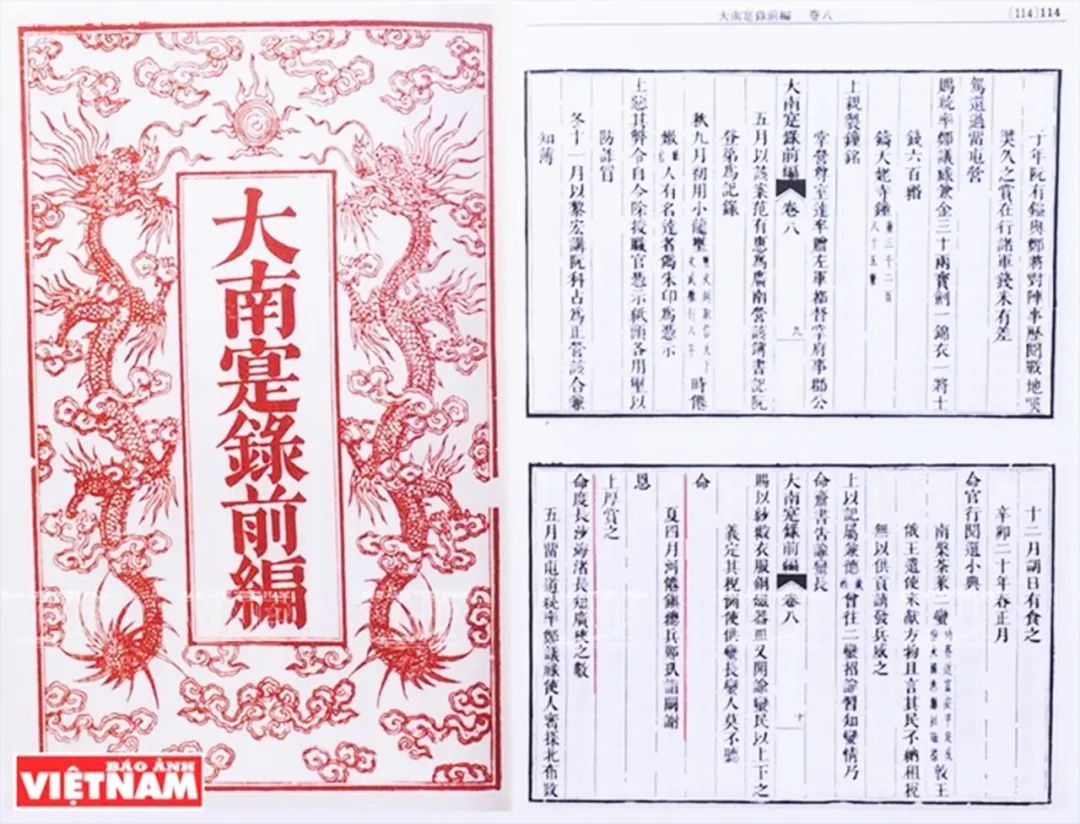 大南寔錄前編
BÁO ẢNH
VIỆTNAM
大南寔錄前編 卷八
(114)114
丁年阮有鎰與鄭將對陣事歷閱戰地嘆
奬久之賞在行諸軍錢未有差
駕還過當屯營
賜統率鄭議盛兼金三十兩寶劍一錦衣一將士
錢六百緡
鑄大姥寺鍾
重三千二百
八十五觔
上親製鍾銘
掌營尊室達卒贈左軍都督掌府事郡公
大南寔錄前編 卷八
九
五月以該案范有應為廣南營該簿書記阮
登第為記錄
秋九月初用小龍璽
時僊
人有名達者竊朱印為憑示
上惡其弊令自今除授職官憑示紙頭各用璽以
防詐冒
冬十一月以黎宏講阮科占為正營該合兼
知簿
十二月朔日有食之
辛卯二十年春正月
命官行閱選小典
南榮茶萊二蠻
王
俄王遣使來獻方物且言其民不納租稅
無以供貢請發兵威之
上以記屬兼德
曾往二蠻招諭習知蠻情乃
命齎書告諭蠻長
大南寔錄前編 卷八
十
賜以紗緞衣服銅磁器皿又開諭蠻民以上下之
義定其稅例使供蠻長蠻人莫不聽
命
夏四月河僊鎮總兵鄚玖詣闕謝
恩
上厚賞之
命度長沙海渚長短廣狹之數
五月當屯道統率鄭議盛使人密探北布政